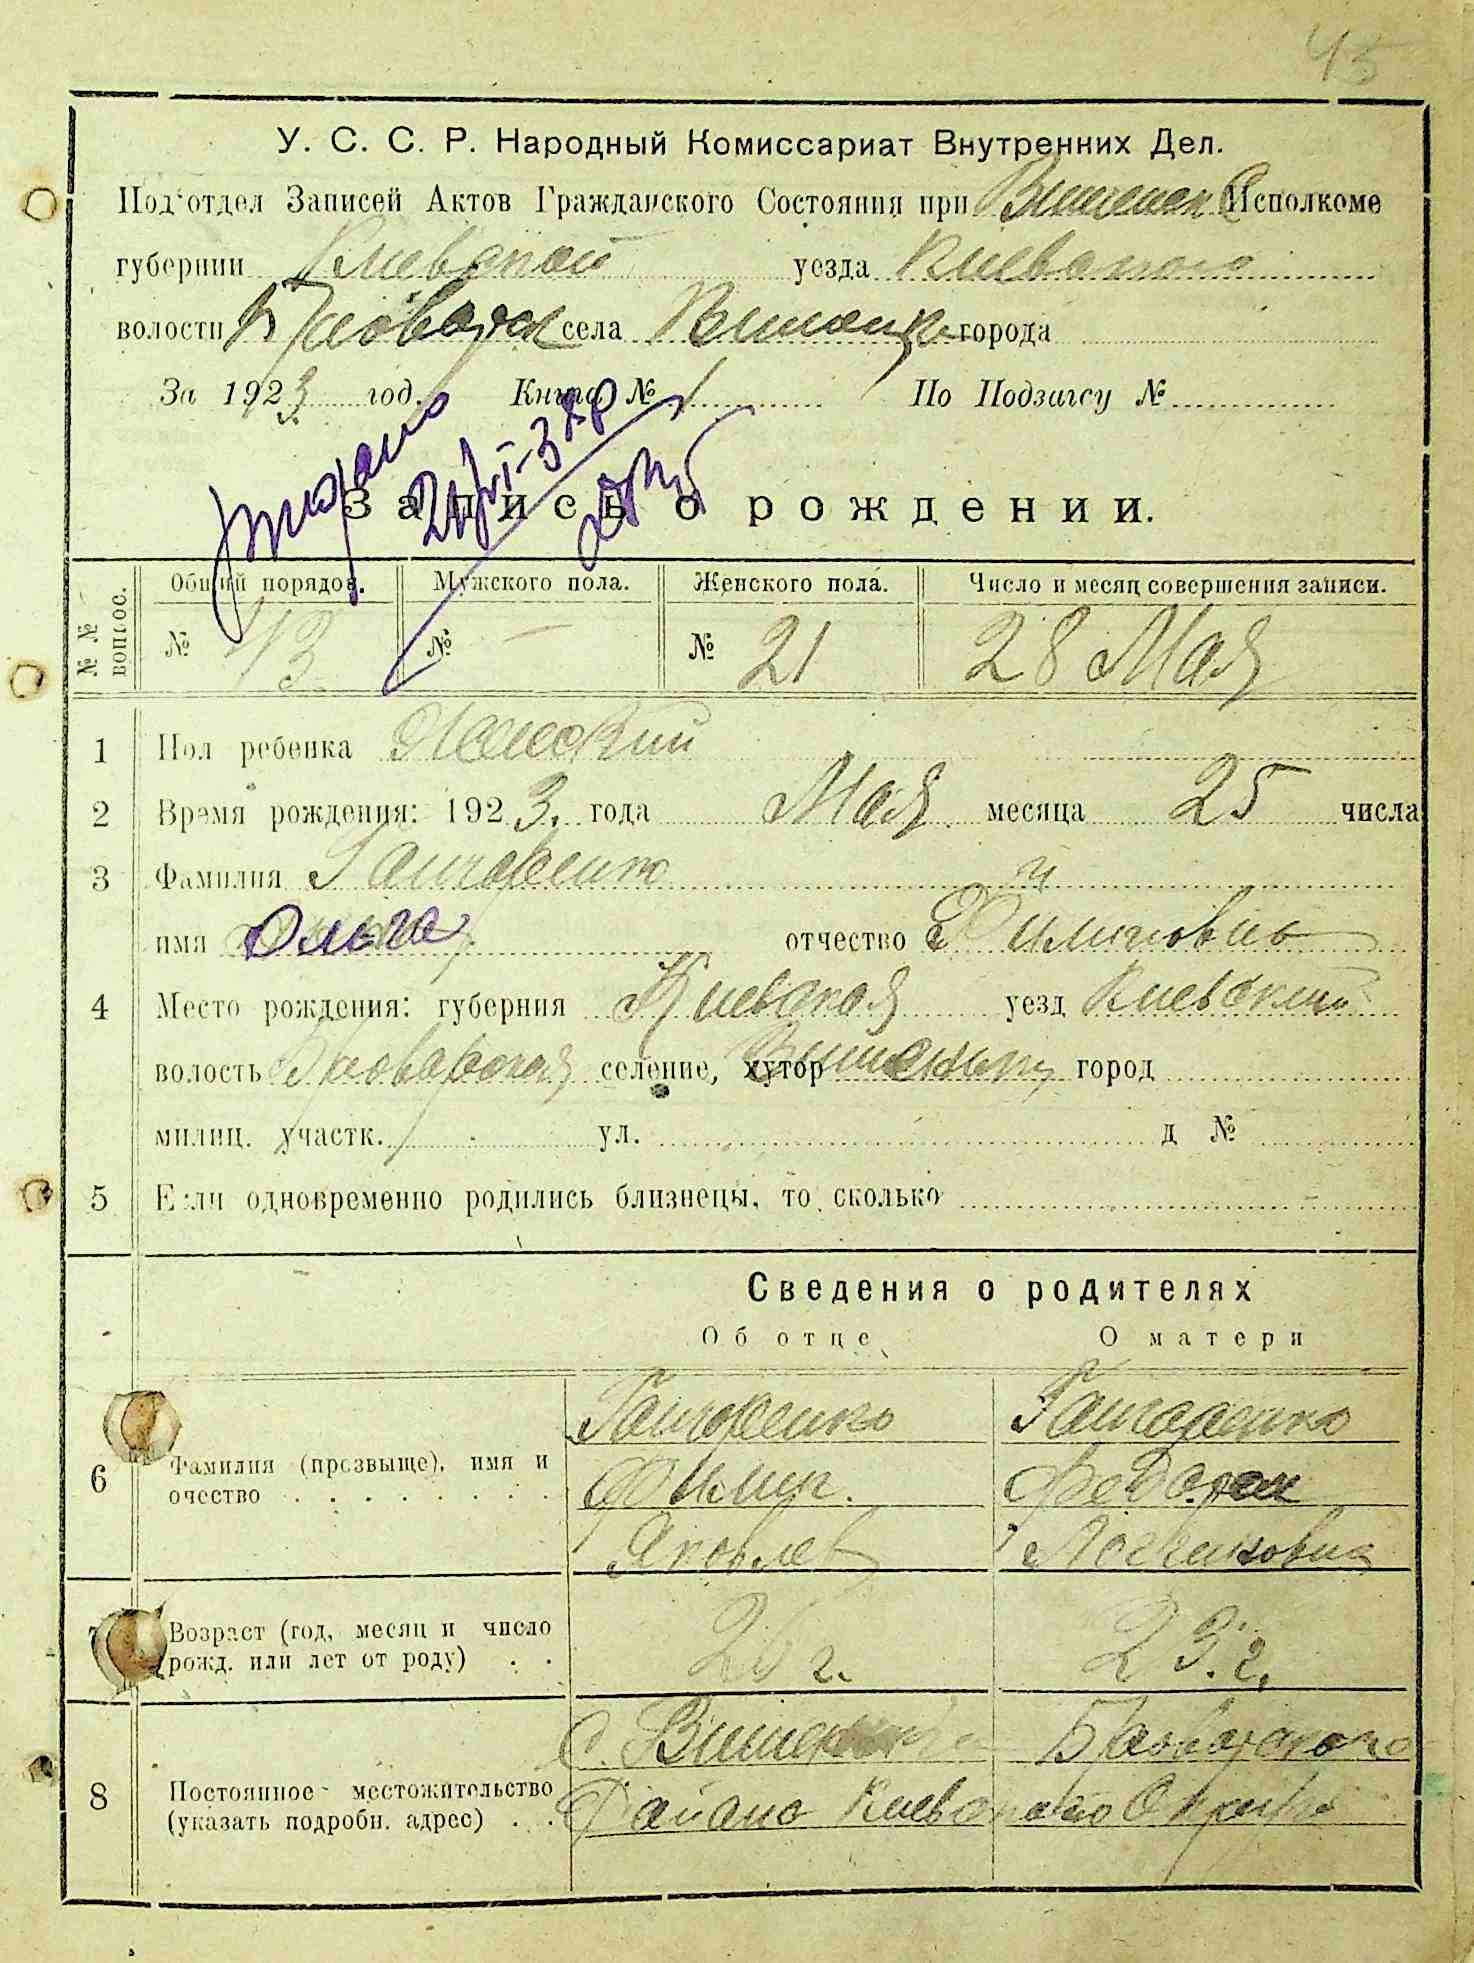 45
У. С. С. Р. Народный Комиссариат Внутренних Дел.
Под'отдел Записей Актов Гражданского Состояния при Исполкоме
губернии Киевской уезда Киевского
волости села города
За 1923 год. Книга № 1 По Подзагсу №
Запись о рождении.
№ № вопрос. Общий порядов. Мужского пола. Женского пола. Число и месяц совершения записи.
№ 43 № — № 21 28 Мая
1 Пол ребенка Женский
2 Время рождения: 1923. года Мая месяца 25 числа
3 Фамилия Гангоренко
имя Ольга отчество Филиповна
4 Место рождения: губерния Киевская уезд Киевский
волость Броварская селение, хутор город
милиц. участк. ул. д №
5 Если одновременно родились близнецы, то сколько
Сведения о родителях
Об отце О матери
6 Фамилия (прозвыще), имя и очество
Гангоренко Гангоренко
Филип.
Яковлев
7 Возраст (год, месяц и число рожд. или лет от роду)
26 г. 23. г.
8 Постоянное местожительство (указать подробн. адрес)
с. Броварского
Района Киевского Округа